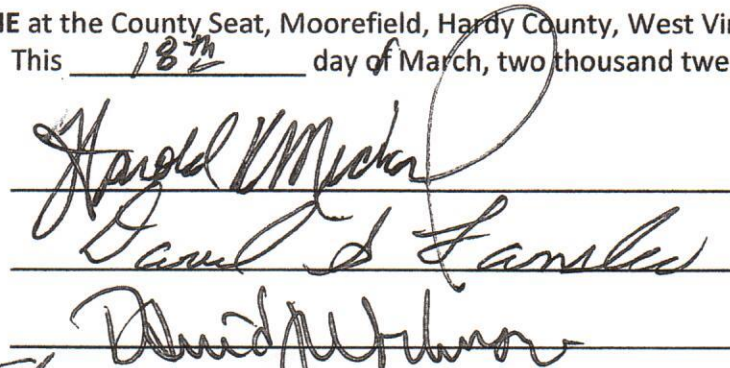 NE at the County Seat, Moorefield, Hardy County, West Vir
This 18th day of March, two thousand twe
Harold K Michael
David S
David J Workman